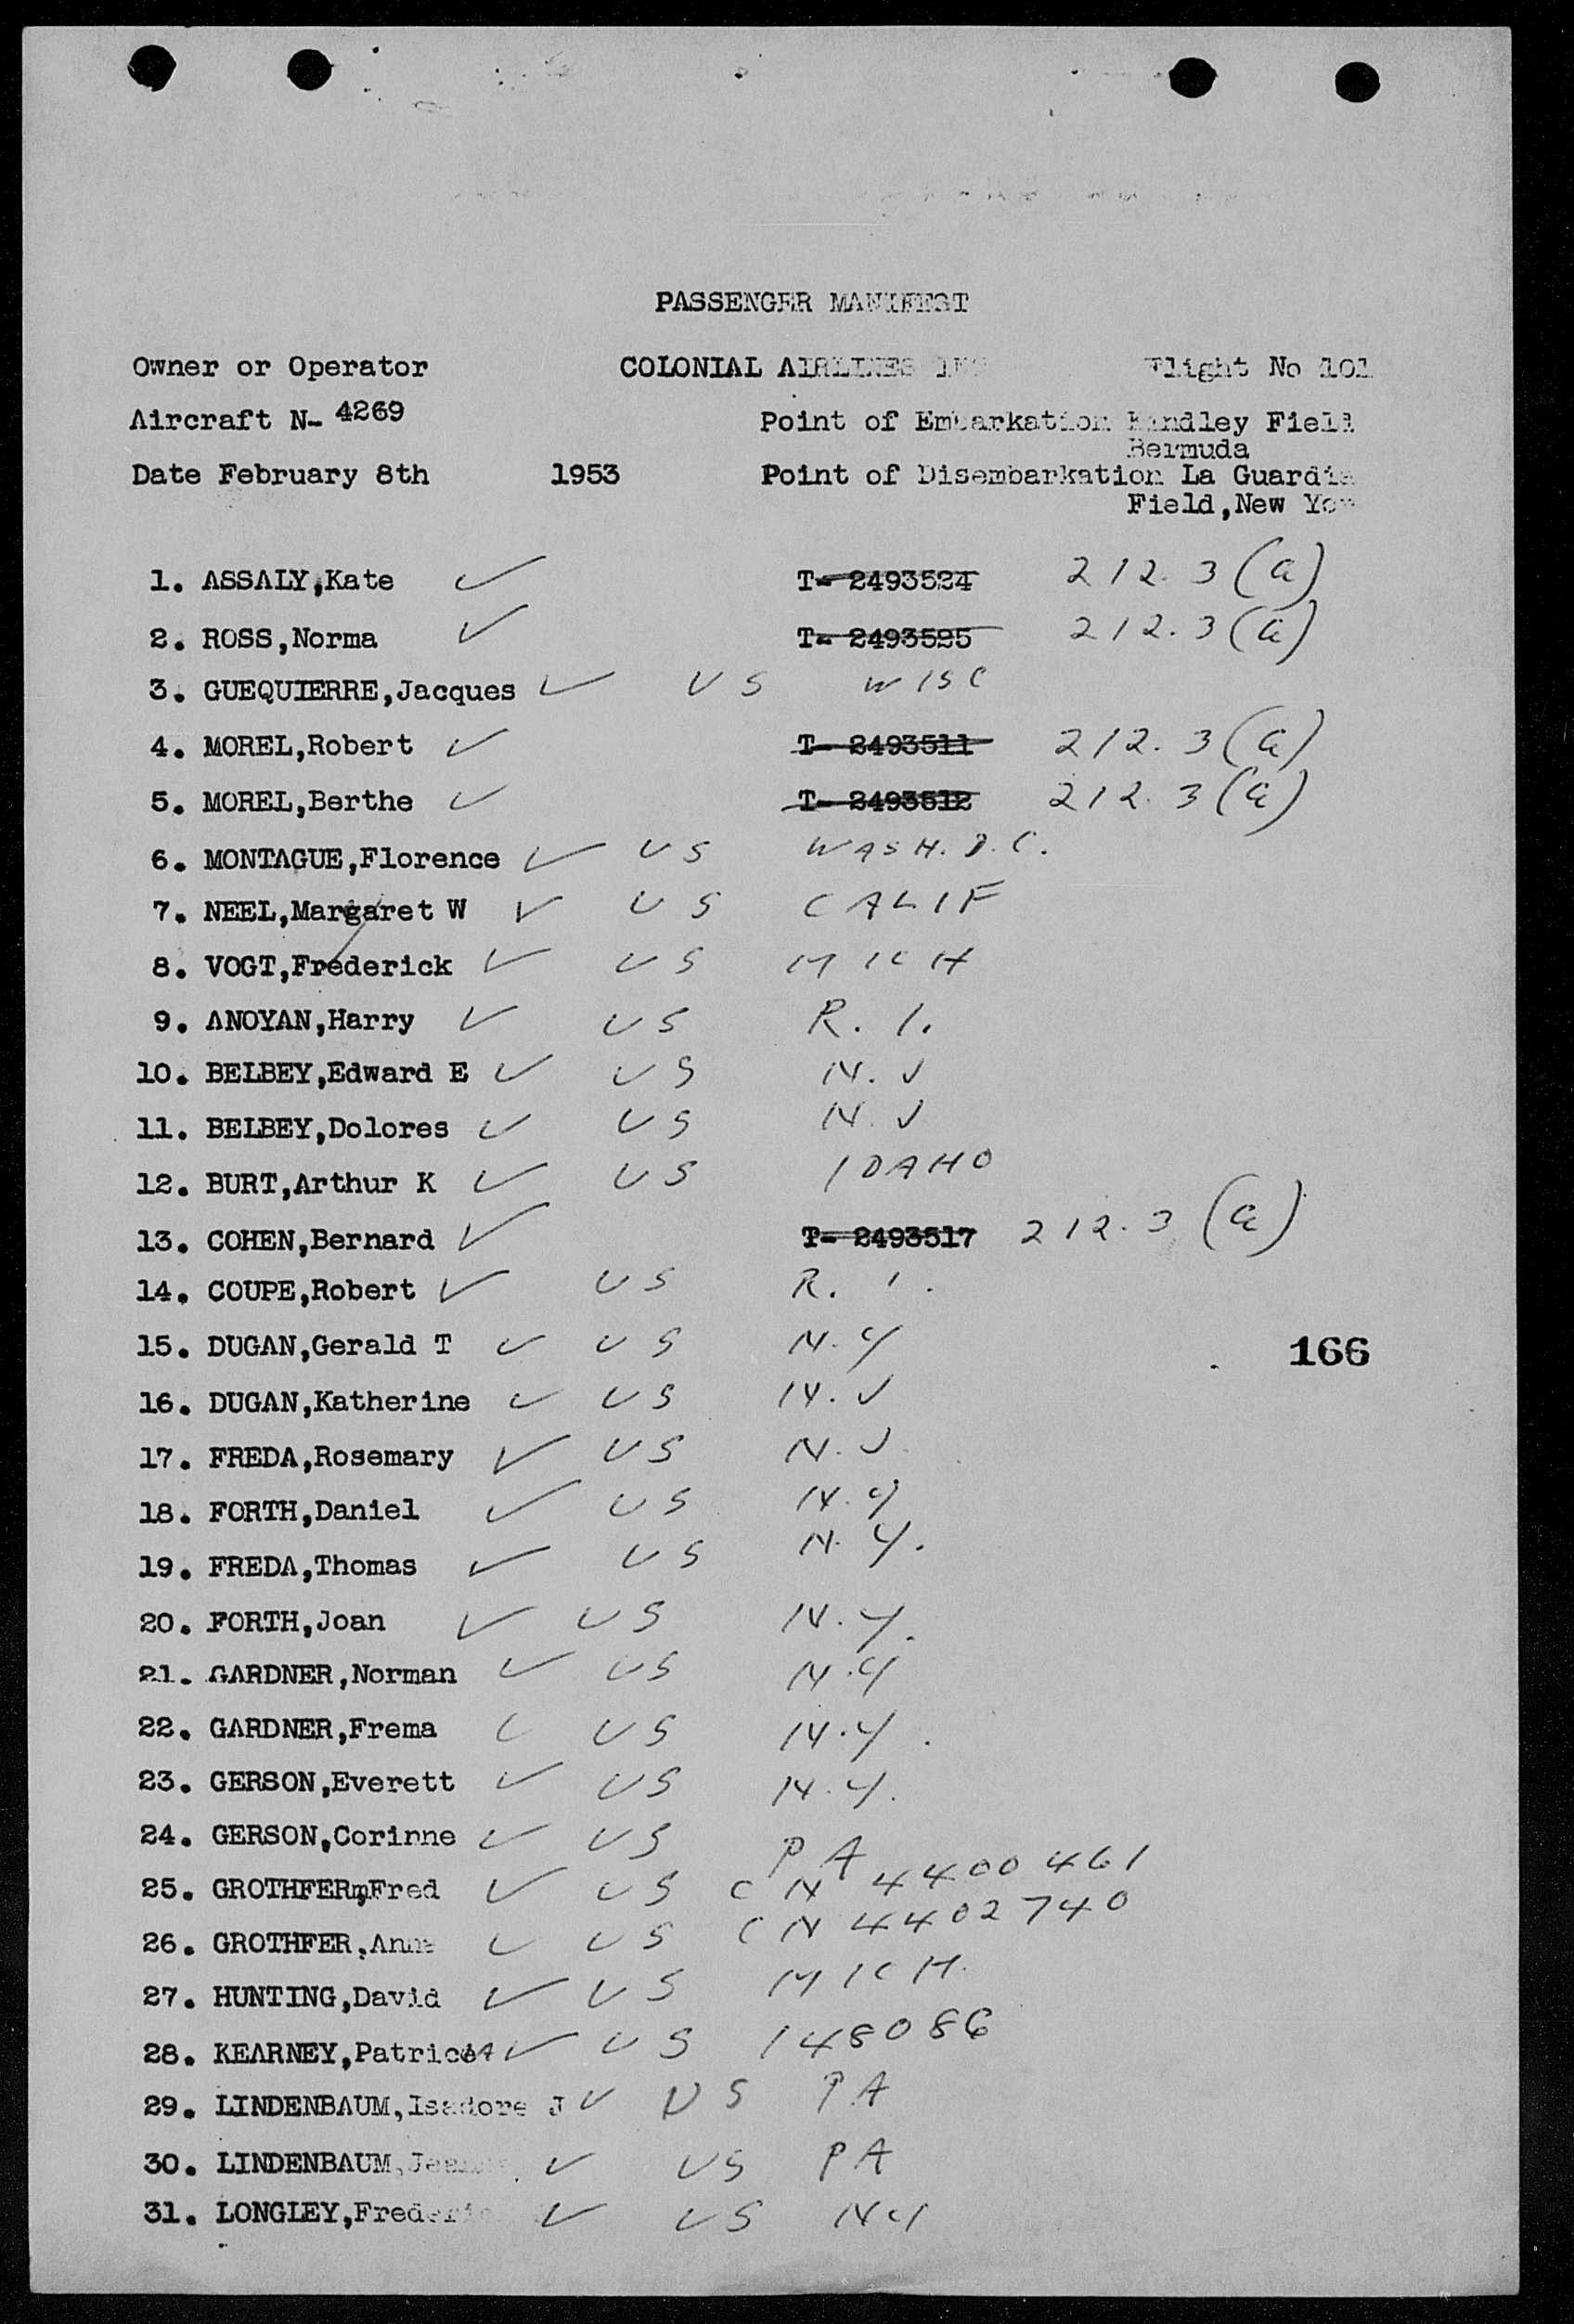 PASSENGER MANIFEST
Owner or Operator COLONIAL AIRLINES INC Flight No 101
Aircraft N- 4269 Point of Embarkation Kindley Field
Bermuda
Date February 8th 1953 Point of Disembarkation La Guardia
Field,New Yor
1. ASSALY,Kate ✓ T- 2493524 212.3 (a)
2. ROSS,Norma ✓ T- 2493525 212.3 (a)
3. GUEQUIERRE,Jacques ✓ US WISC
4. MOREL,Robert ✓ T- 2493511 212.3 (a)
5. MOREL,Berthe ✓ T- 2493512 212.3 (a)
6. MONTAGUE,Florence ✓ US WASH. D.C.
7. NEEL,Margaret W ✓ US CALIF
8. VOGT,Frederick ✓ US MICH
9. ANOYAN,Harry ✓ US R. I.
10. BELBEY,Edward E ✓ US N. J
11. BELBEY,Dolores ✓ US N. J
12. BURT,Arthur K ✓ US IDAHO
13. COHEN,Bernard ✓ T- 2493517 212.3 (a)
14. COUPE,Robert ✓ US R. I.
15. DUGAN,Gerald T ✓ US N.Y
166
16. DUGAN,Katherine ✓ US N.J
17. FREDA,Rosemary ✓ US N.J
18. FORTH,Daniel ✓ US N.Y
19. FREDA,Thomas ✓ US N.Y.
20. FORTH,Joan ✓ US N.Y.
21. GARDNER,Norman ✓ US N.Y
22. GARDNER,Frema ✓ US N.Y.
23. GERSON,Everett ✓ US N.Y.
24. GERSON,Corinne ✓ US PA
25. GROTHFER,Fred ✓ US CN 4400461
26. GROTHFER,Anna ✓ US CN 4402740
27. HUNTING,David ✓ US MICH.
28. KEARNEY,Patrica ✓ US 148086
29. LINDENBAUM,Isadore J ✓ US PA
30. LINDENBAUM, ✓ US PA
31. LONGLEY,Frederic ✓ US NY